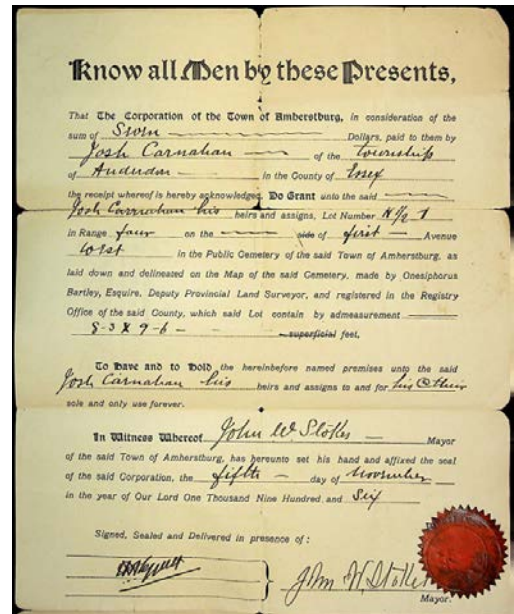 Know all Men by these Presents,
That The Corporation of the Town of Amherstburg, in consideration of the
sum of Dollars, paid to them by
Josh Carnahan of the township
of Anderdon in the County of Essex
the receipt whereof is hereby acknowledged, Do Grant unto the said
Josh Carnahan his heirs and assigns, Lot Number N 1/2
in Range four on the side of first Avenue
West in the Public Cemetery of the said Town of Amherstburg, as
laid down and delineated on the Map of the said Cemetery, made by Onesiphorus
Bartley, Esquire, Deputy Provincial Land Surveyor, and registered in the Registry
Office of the said County, which said Lot contain by admeasurement
8-3 X 9-6 - superficial feet.
To Have and to Hold the hereinbefore named premises unto the said
Josh Carnahan his heirs and assigns to and for his & their
sole and only use forever.
In Witness Whereof John W Stokes Mayor
of the said Town of Amherstburg, has hereunto set his hand and affixed the seal
of the said Corporation, the fifth day of November
in the year of Our Lord One Thousand Nine Hundred and Six
Signed, Sealed and Delivered in presence of:
John W. Stokes
Mayor.